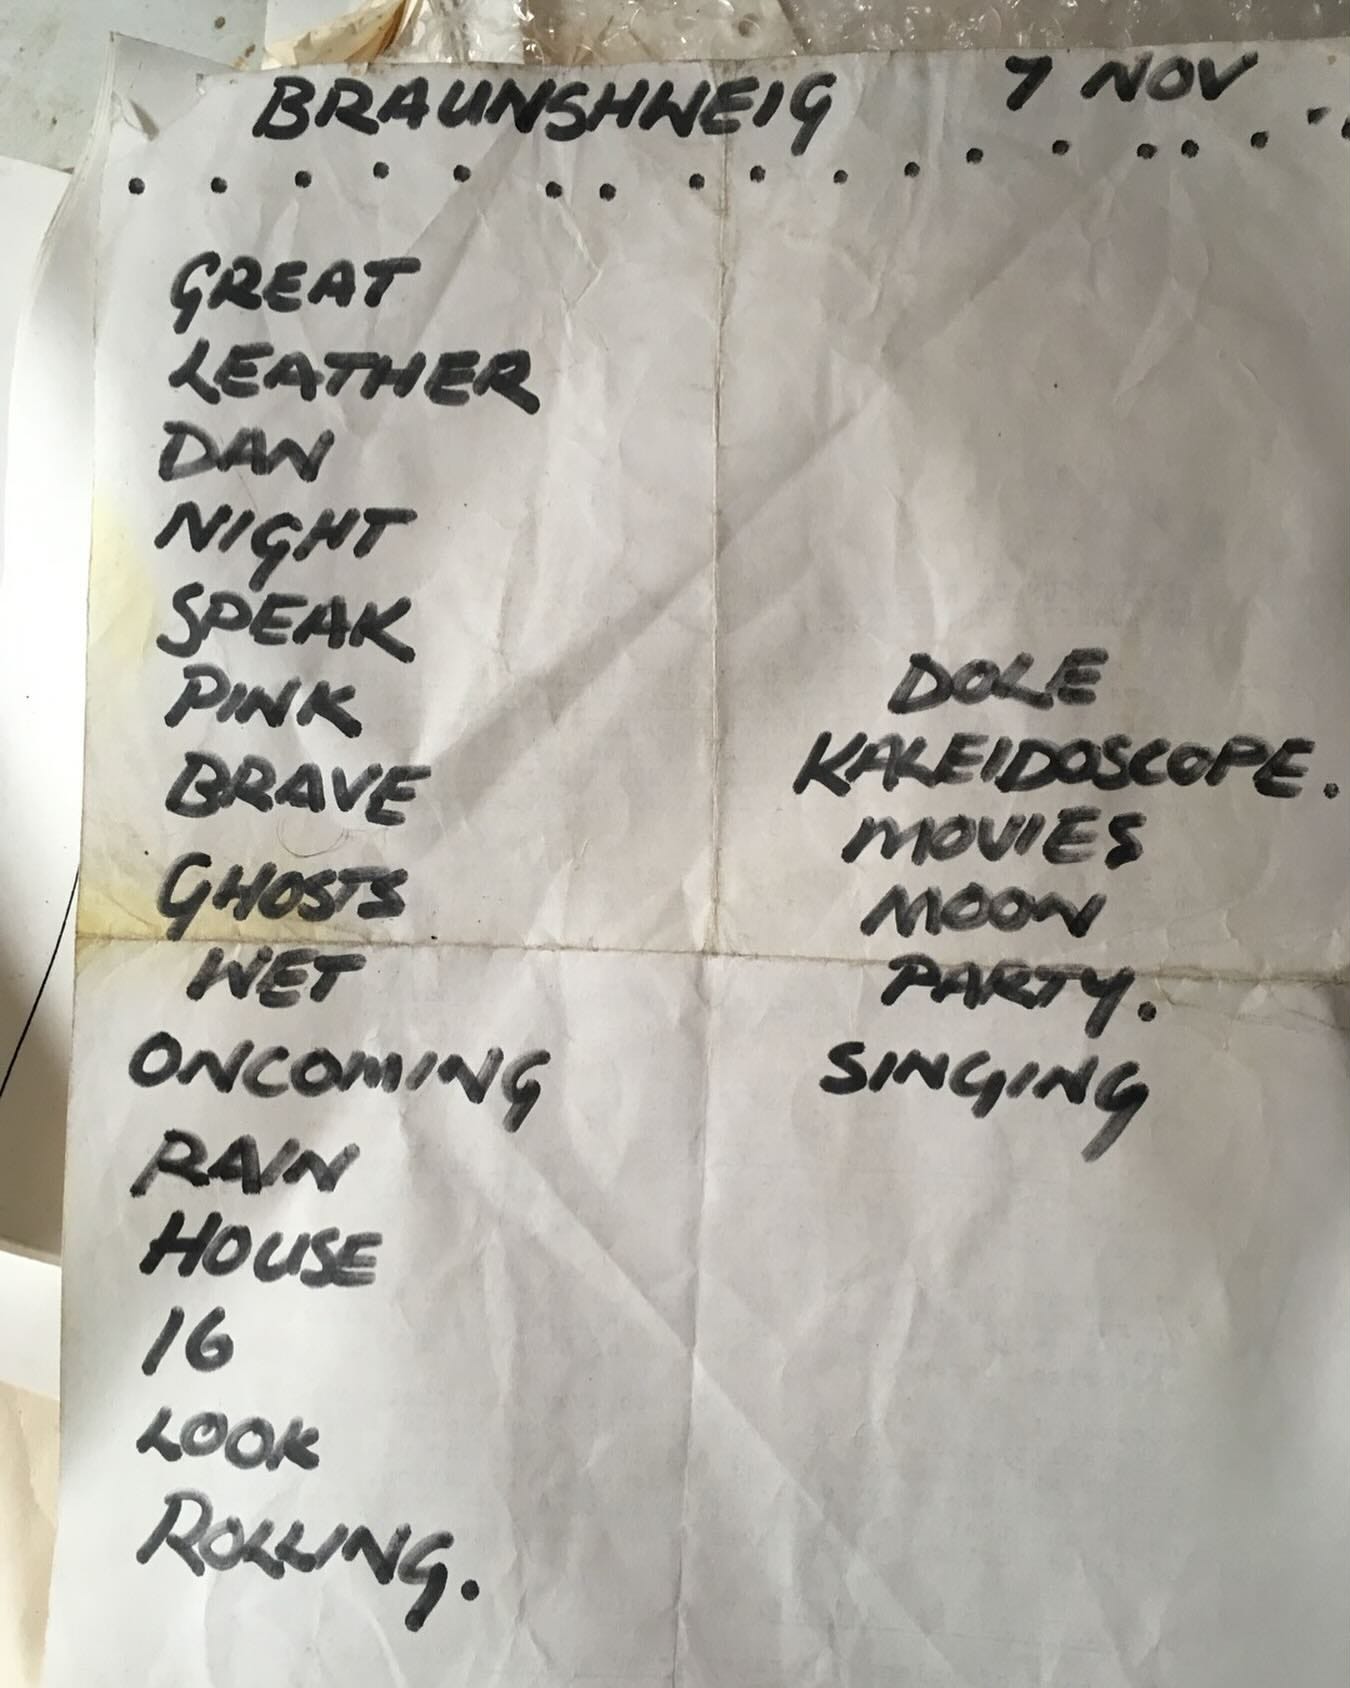 BRAUNSHWEIG 7 NOV
GREAT
LEATHER
DAN
NIGHT
SPEAK
PINK
BRAVE
GHOSTS
WET
ONCOMING
RAIN
HOUSE
16
LOOK
ROLLING.
DOLE
KALEIDOSCOPE.
MOVIES
MOON
PARTY.
SINGING